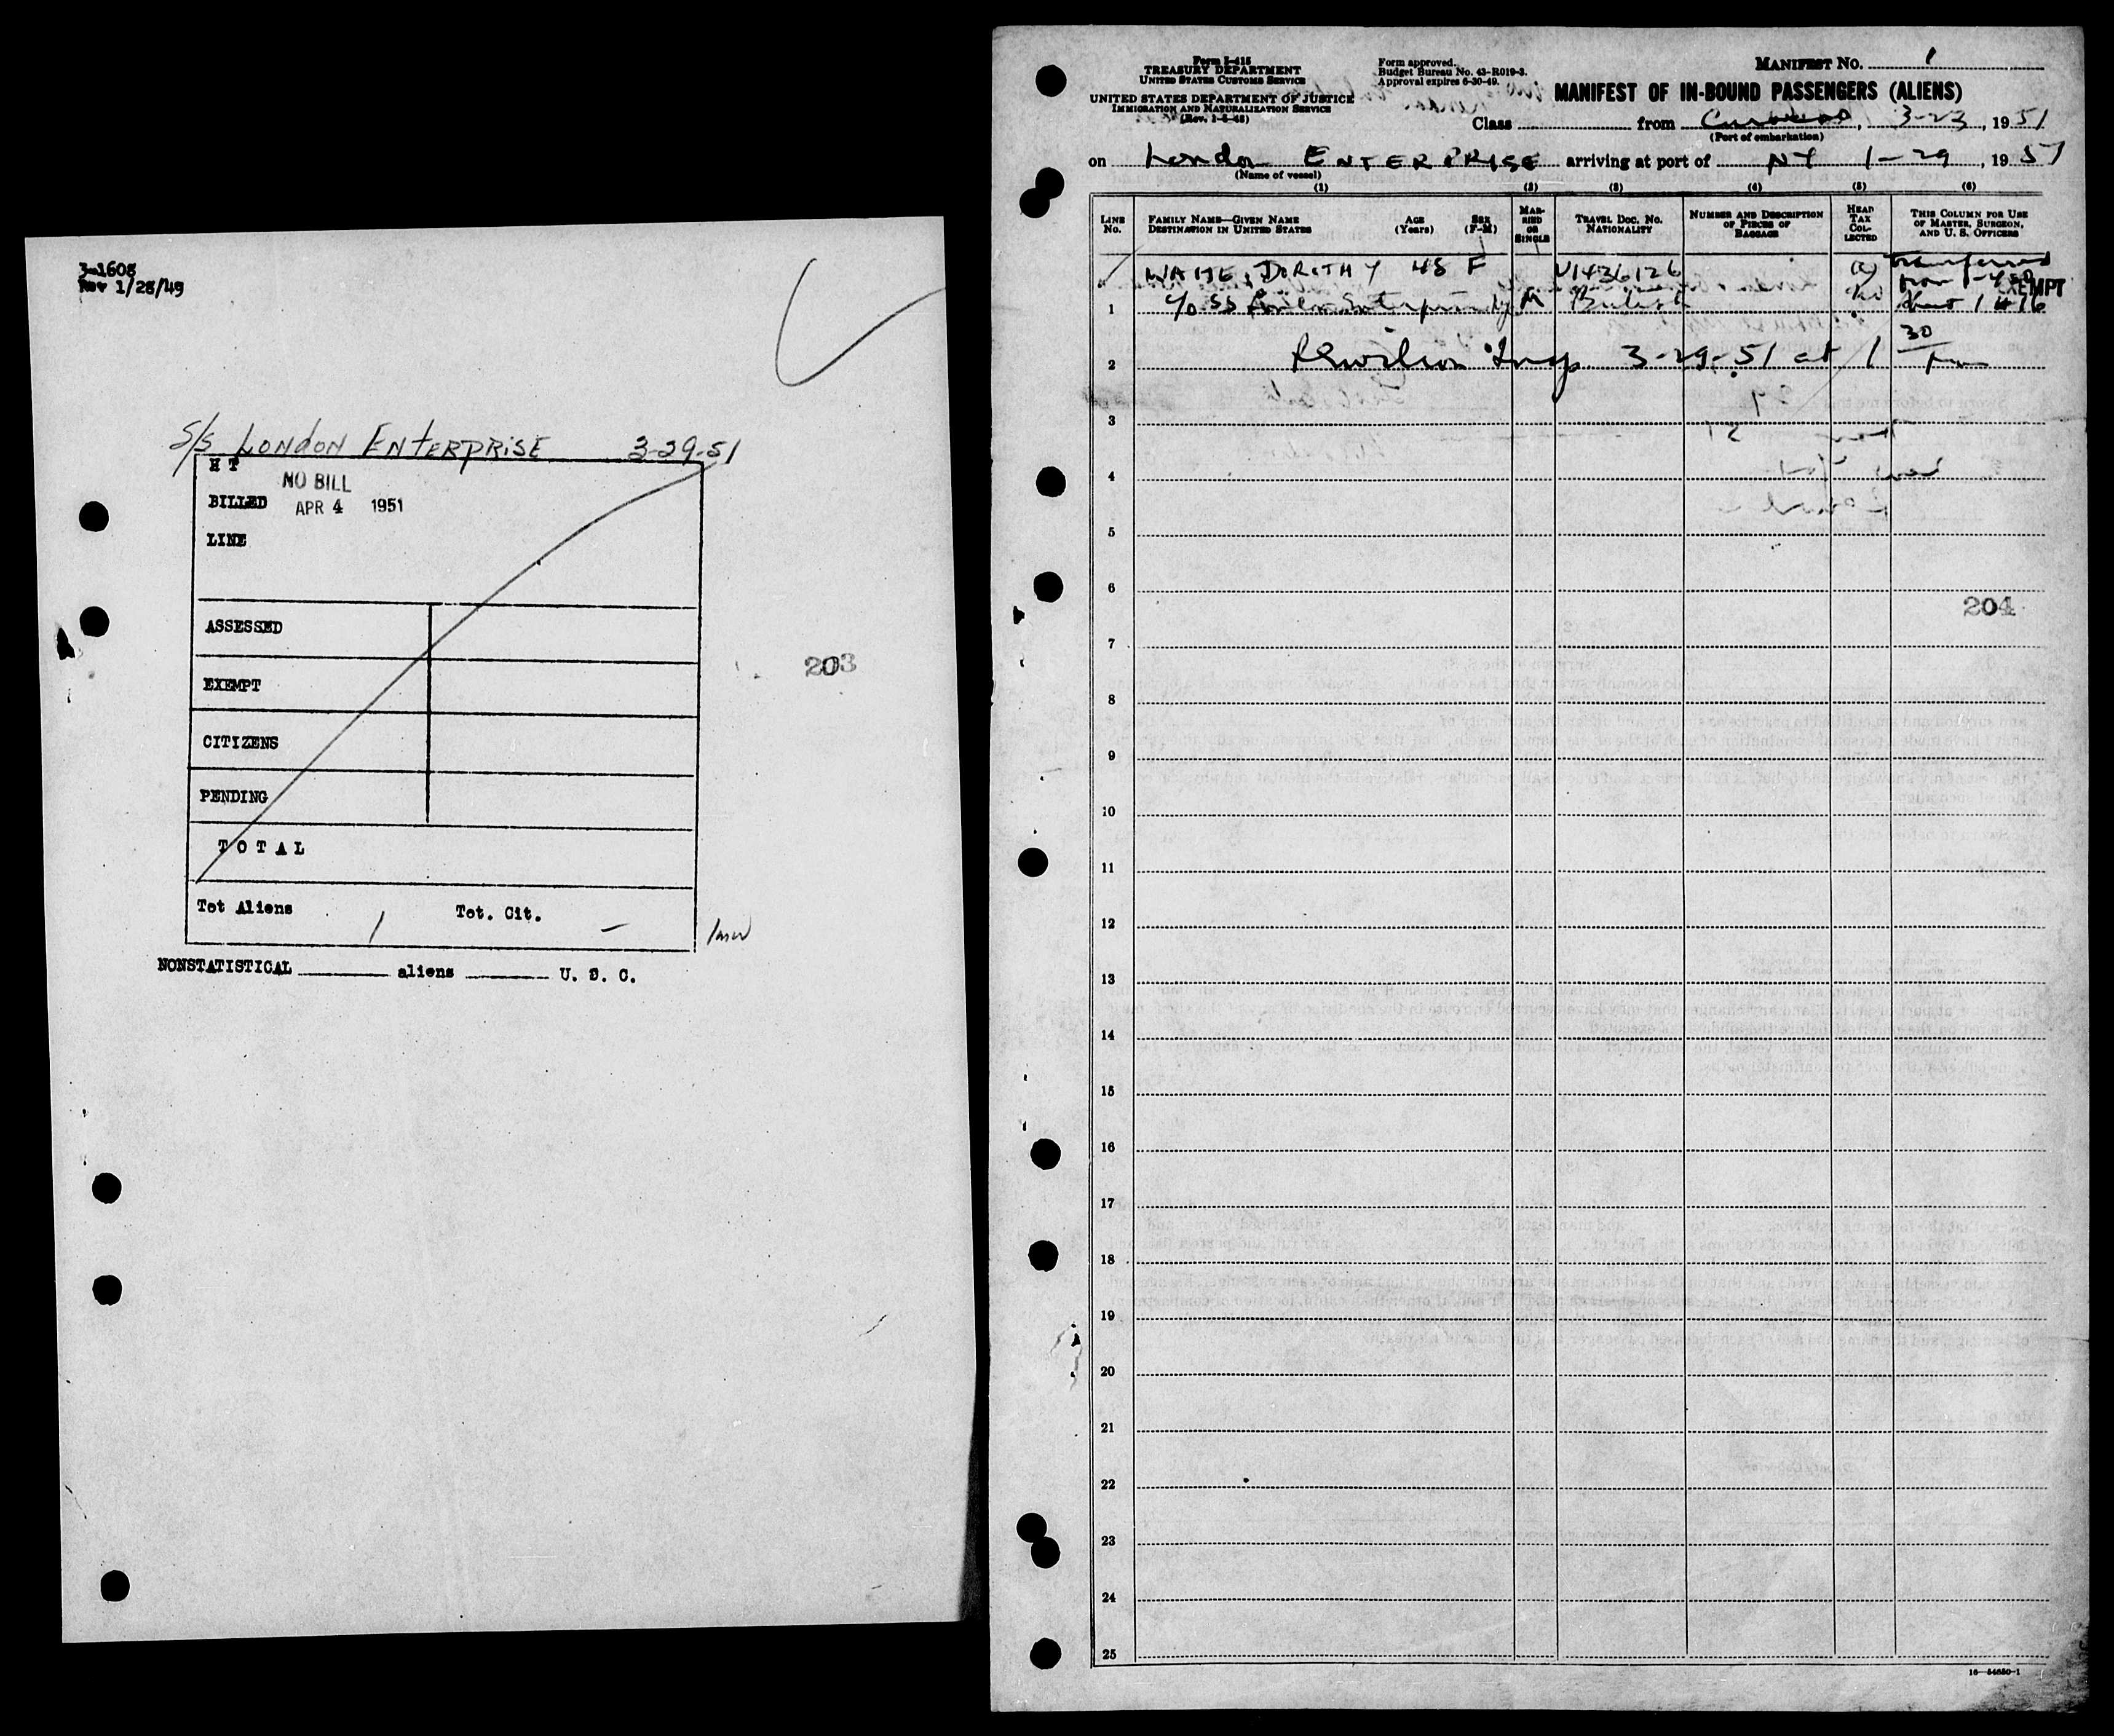 3-1608
Rev 1/28/49
S/S LONDON ENTERPRISE 3-29-51
H T
NO BILL
BILLED APR 4 1951
LINE
ASSESSED
EXEMPT
CITIZENS
PENDING
T O T A L
Tot Aliens 1 Tot. Cit. –
NONSTATISTICAL aliens U. S. C.
203
Form I-415
TREASURY DEPARTMENT
UNITED STATES CUSTOMS SERVICE
UNITED STATES DEPARTMENT OF JUSTICE
IMMIGRATION AND NATURALIZATION SERVICE
Form approved.
Budget Bureau No. 43-R019-3.
Approval expires 6-30-49.
MANIFEST NO. 1
MANIFEST OF IN-BOUND PASSENGERS (ALIENS)
Class from 3-23, 1951
(Port of embarkation)
on London ENTERPRISE arriving at port of NY 1-29, 1951
(Name of vessel)
(1) (2) (3) (4) (5) (6)
LINE No.
FAMILY NAME—GIVEN NAME
DESTINATION IN UNITED STATES
AGE (Years)
SEX (F-M)
MARRIED OR SINGLE
TRAVEL DOC. NO.
NATIONALITY
NUMBER AND DESCRIPTION OF PIECES OF BAGGAGE
HEAD TAX COLLECTED
THIS COLUMN FOR USE OF MASTER, SURGEON, AND U. S. OFFICERS
DOROTHY 48 F V1436126 Transferred
EXEMPT
1 c/o SS London Enterprise M British
2 Insp. 3-29-51 at 1 30
3
4
5
6
204
7
8
9
10
11
12
13
14
15
16
17
18
19
20
21
22
23
24
25
16—54650-1